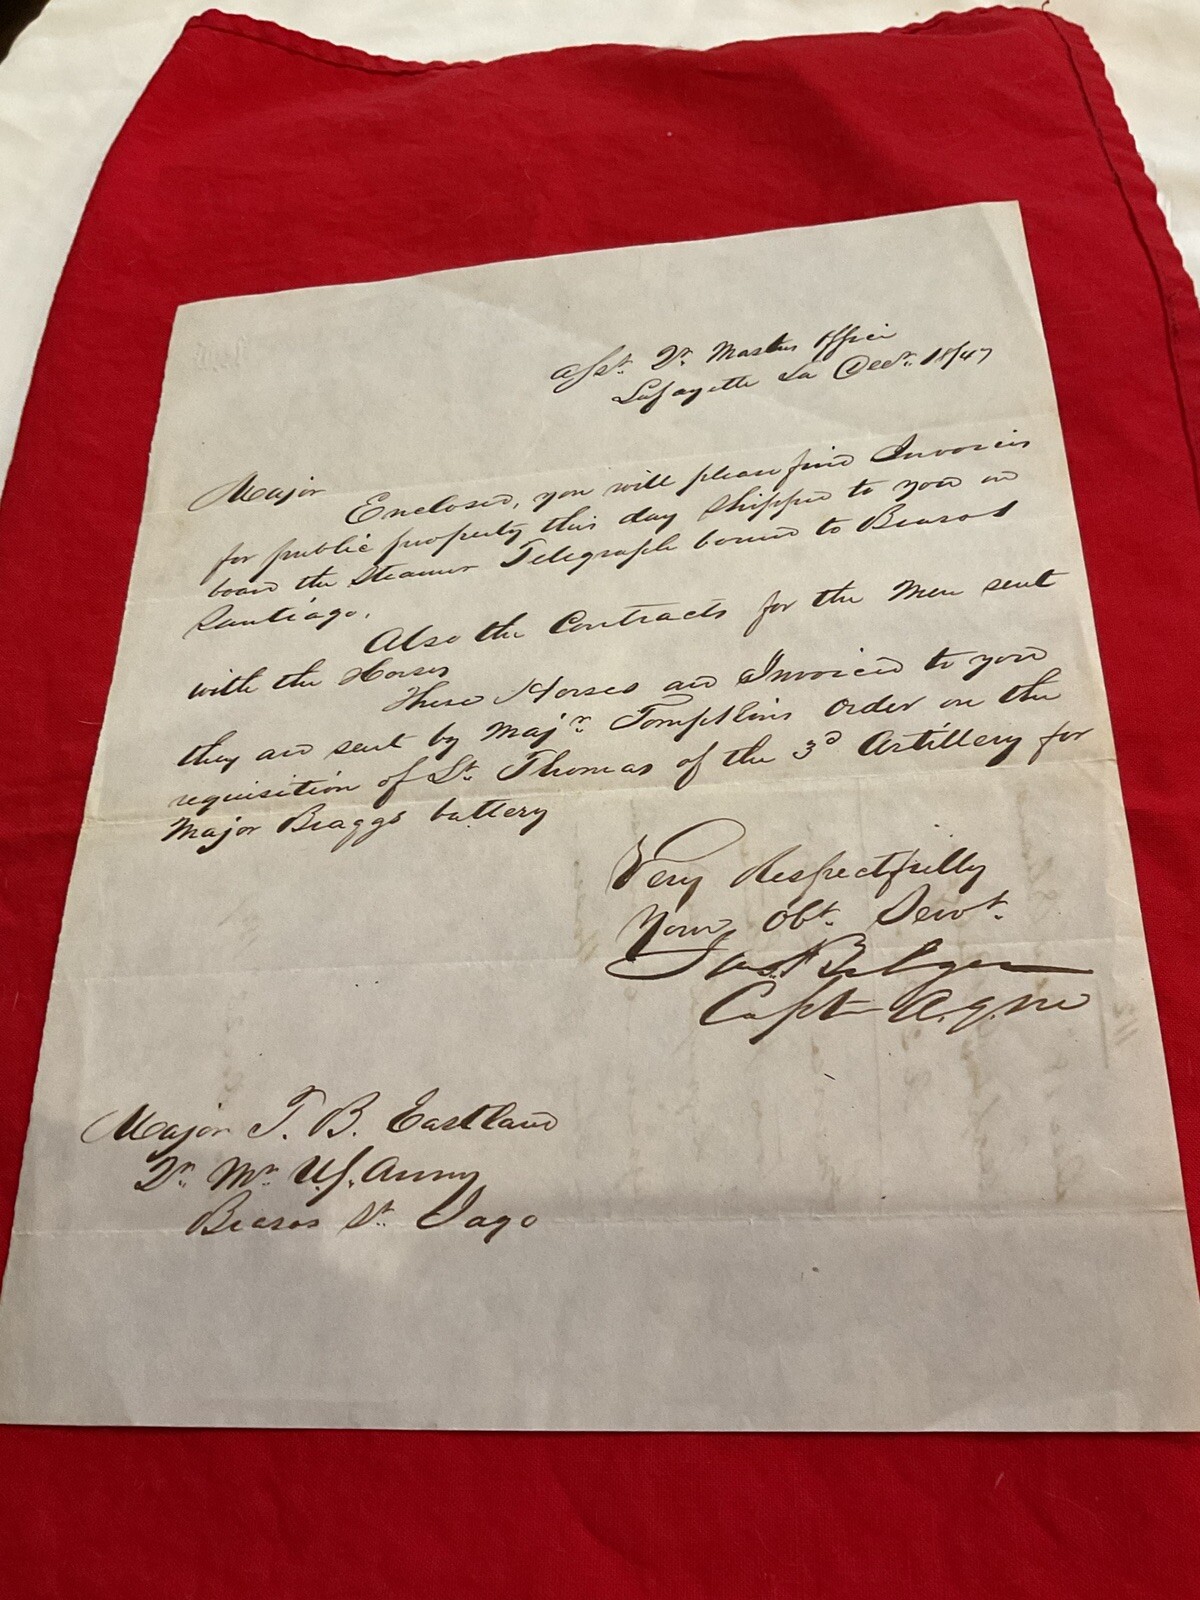 Asst. Qr. Masters Office
Lafayette La Decr. 1847
Major
Enclosed, you will please find Invoices
for public property this day shipped to you on
board the Steamer Telegraph bound to Brasos
Santiago.
Also the Contracts for the Men sent
with the Horses
These Horses are Invoiced to you
they are sent by Majr. Tompkins order on the
requisition of Lt. Thomas of the 3d Artillery for
Major Braggs battery
Very Respectfully
Your Obt. Servt.
Capt A.Q.M
Major T. B. Eastland
Qr. Mr. U.S. Army
Brasos St. Iago